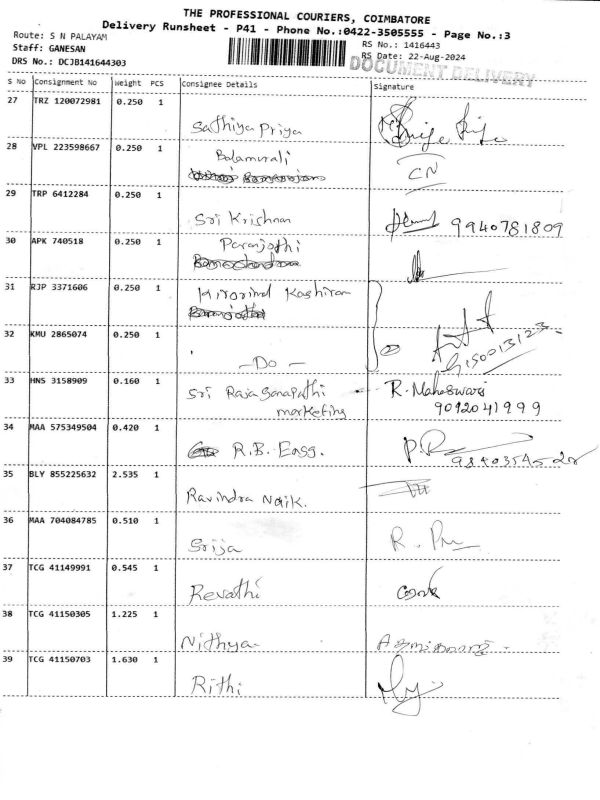 THE PROFESSIONAL COURIERS, COIMBATORE
Delivery Runsheet - P41 - Phone No.:0422-3505555 - Page No.:3
Route: S N PALAYAM
Staff: GANESAN
DRS No.: DCJB141644303
RS No.: 1416443
RS Date: 22-Aug-2024
DOCUMENT DELIVERY
S No Consignment No Weight PCS Consignee Details Signature
27 TRZ 120072981 0.250 1
Sathiya Priya
28 VPL 223598667 0.250 1 Balamurali
CN
29 TRP 6412284 0.250 1
Sri Krishnan 9940781809
30 APK 740518 0.250 1 Paranjothi
31 RJP 3371606 0.250 1
32 KMU 2865074 0.250 1
- Do -
33 HNS 3158909 0.160 1 Sri Raja Ganapathi R. Maheswari
marketing 9092041999
34 MAA 575349504 0.420 1
R.B. Engg.
35 BLY 855225632 2.535 1
Ravindra Naik.
36 MAA 704084785 0.510 1
Srija
37 TCG 41149991 0.545 1
Revathi
38 TCG 41150305 1.225 1
Nithya
39 TCG 41150703 1.630 1
Rithi